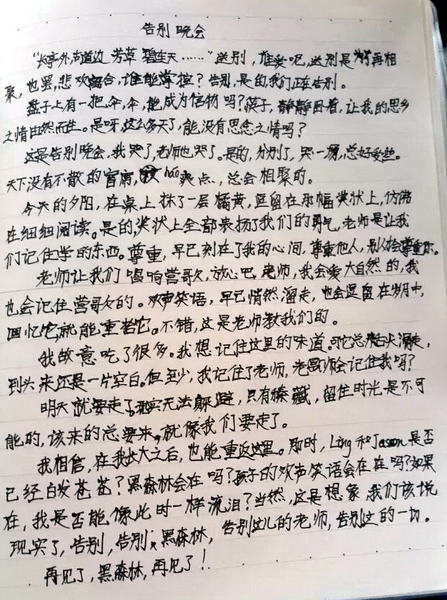 告别晚会
"长亭外,古道边,芳草碧连天……"送别,难受吧,送别是为了再相
聚,也罢,悲欢离合,谁能掌控?告别,是的,我们正在告别。
盘子上有一把伞,伞,能成为信物吗?筷子,静静困着,让我的思乡
之情由然而生。是呀,这么多天了,能没有思念之情吗?
这是告别晚会,我哭了,老师也哭了。是的,分别了,哭一场,总好受些。
天下没有不散的宴席, hǎo 爽点,总会相聚的。
今天的夕阳,在桌上抹了一层橘黄,逗留在那幅奖状上,仿佛
在细细阅读。是的,奖状上全部表扬了我们的勇气,老师是让我
们记住学的东西。尊重,早已刻在了我的心间,尊重他人,别人才会尊重你。
老师让我们唱响营歌,放心吧,老师,我会爱大自然的,我
也会记住营歌的。欢声笑语,早已悄然溜走,也会逗留在时中,
回忆它就能重拾它。不错,这是老师教我们的。
我故意吃了很多。我想记住这里的味道,可它总悄悄溜走,
到头来还是一片空白。但至少,我记住了老师,老师你会记住我吗?
明天就要走了,现实无法躲避,只有躲藏,留住时光是不可
能的,该来的总要来,就像我们要走了。
我相信,在我长大之后,也能重返这里。那时,Ling和Jason是否
已经白发苍苍?黑森林会在吗?孩子的欢声笑语会在在吗?如果
在,我是否能像此时一样流泪?当然,这是想象,我们该说
现实了,告别,告别,黑森林,告别这儿的老师,告别这的一切。
再见了,黑森林,再见了!